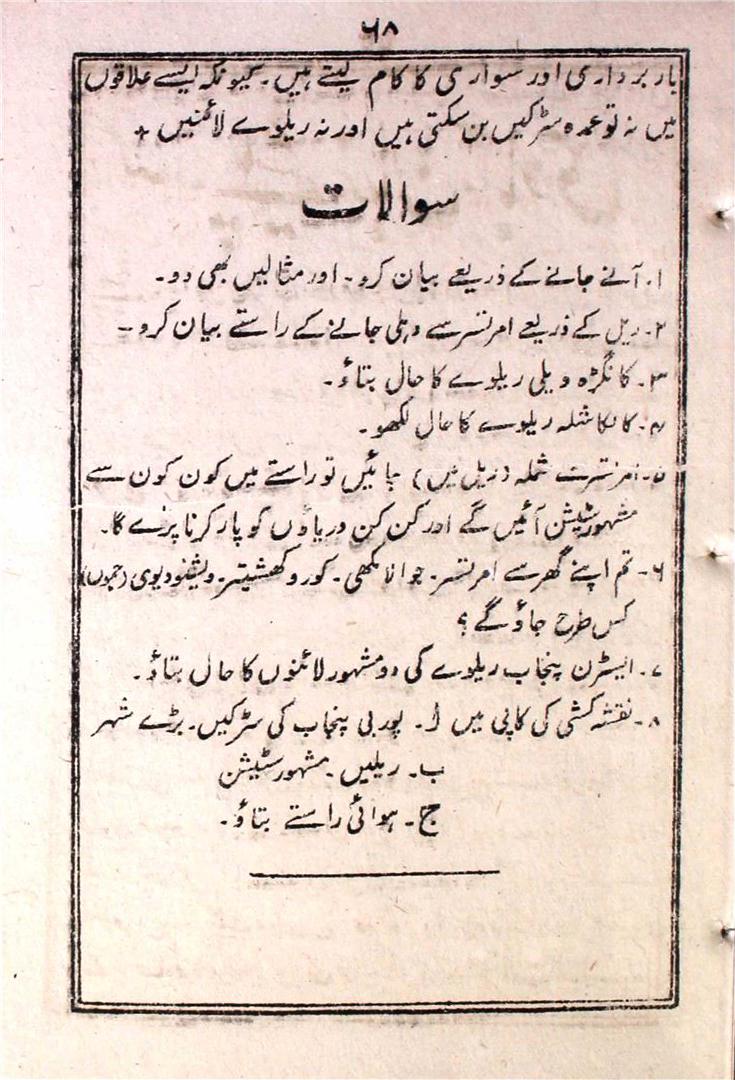 ۶۸
باربرداری اور سواری کا کام لیتے ہیں۔ کیونکہ ایسے علاقوں
میں نہ تو عمدہ سڑکیں بن سکتی ہیں اور نہ ریلوے لائنیں +
سوالات
۱۔ آنے جانے کے ذریعے بیان کرو۔ اور مثالیں بھی دو۔
۲۔ ریل کے ذریعے امرتسر سے دہلی جانے کے راستے بیان کرو۔
۳۔ کانگڑہ ویلی ریلوے کا حال بتاؤ۔
۴۔ کالکا شملہ ریلوے کا حال لکھو۔
۵۔ امرتسر سے شملہ (ریل میں) جائیں تو راستے میں کون کون سے
مشہور سٹیشن آئیں گے اور کن کن دریاؤں کو پار کرنا پڑے گا۔
۶۔ تم اپنے گھر سے امرتسر۔ جوالا مکھی۔ کوروکھشیتر۔ ویشنو دیوی (جموں)
کس طرح جاؤ گے ؟
۷۔ ایسٹرن پنجاب ریلوے کی دو مشہور لائنوں کا حال بتاؤ۔
۸۔ نقشہ کشی کی کاپی میں ا۔ پوربی پنجاب کی سڑکیں۔ بڑے شہر
ب۔ ریلیں۔ مشہور سٹیشن
ج۔ ہوائی راستے بتاؤ۔